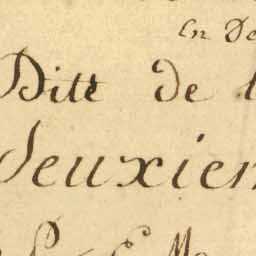 En De
Ditt de l
deuxiem